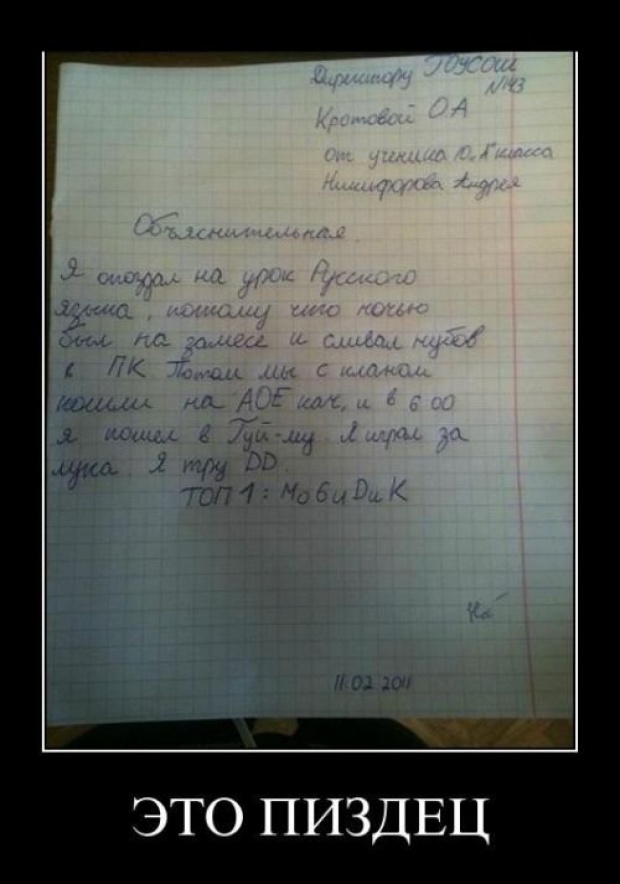 Директору ГОУСОШ
№143
Кротовой О.А
от ученика 10 "А" класса
Никифорова Андрея
Объяснительная.
Я опоздал на урок Русского
языка, потому что ночью
был на замесе и сливал нубов
в ПК Потом мы с кланом
пошли на АОЕ кач, и в 6 00
я пошел в Гуй-му. Я играл за
лука. Я тру DD.
ТОП 1: МоБиДиК
11.02.2011
ЭТО ПИЗДЕЦ